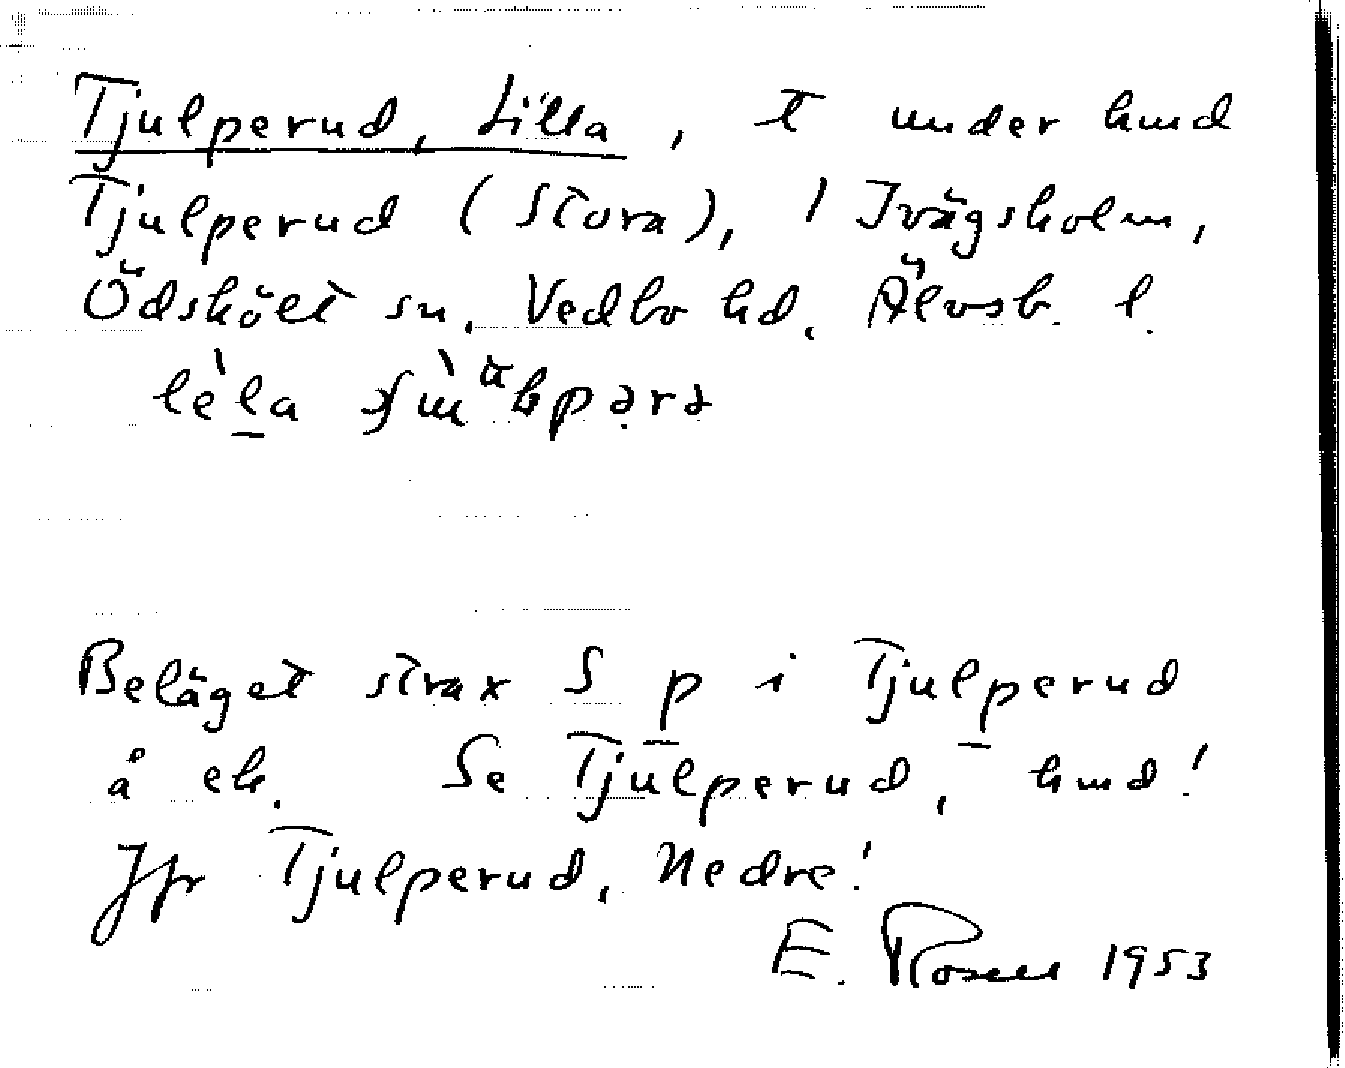 Tjulperud, Lilla, t under hmd
Tjulperud (Stora), 1 Ivägsholm,
Ödskölt sn. Vedbo hd. Älvsb. l.
Beläget strax S p i Tjulperud
å ek. Se Tjulperud, hmd!
Jfr Tjulperud, Nedre!
E. Rosell 1953